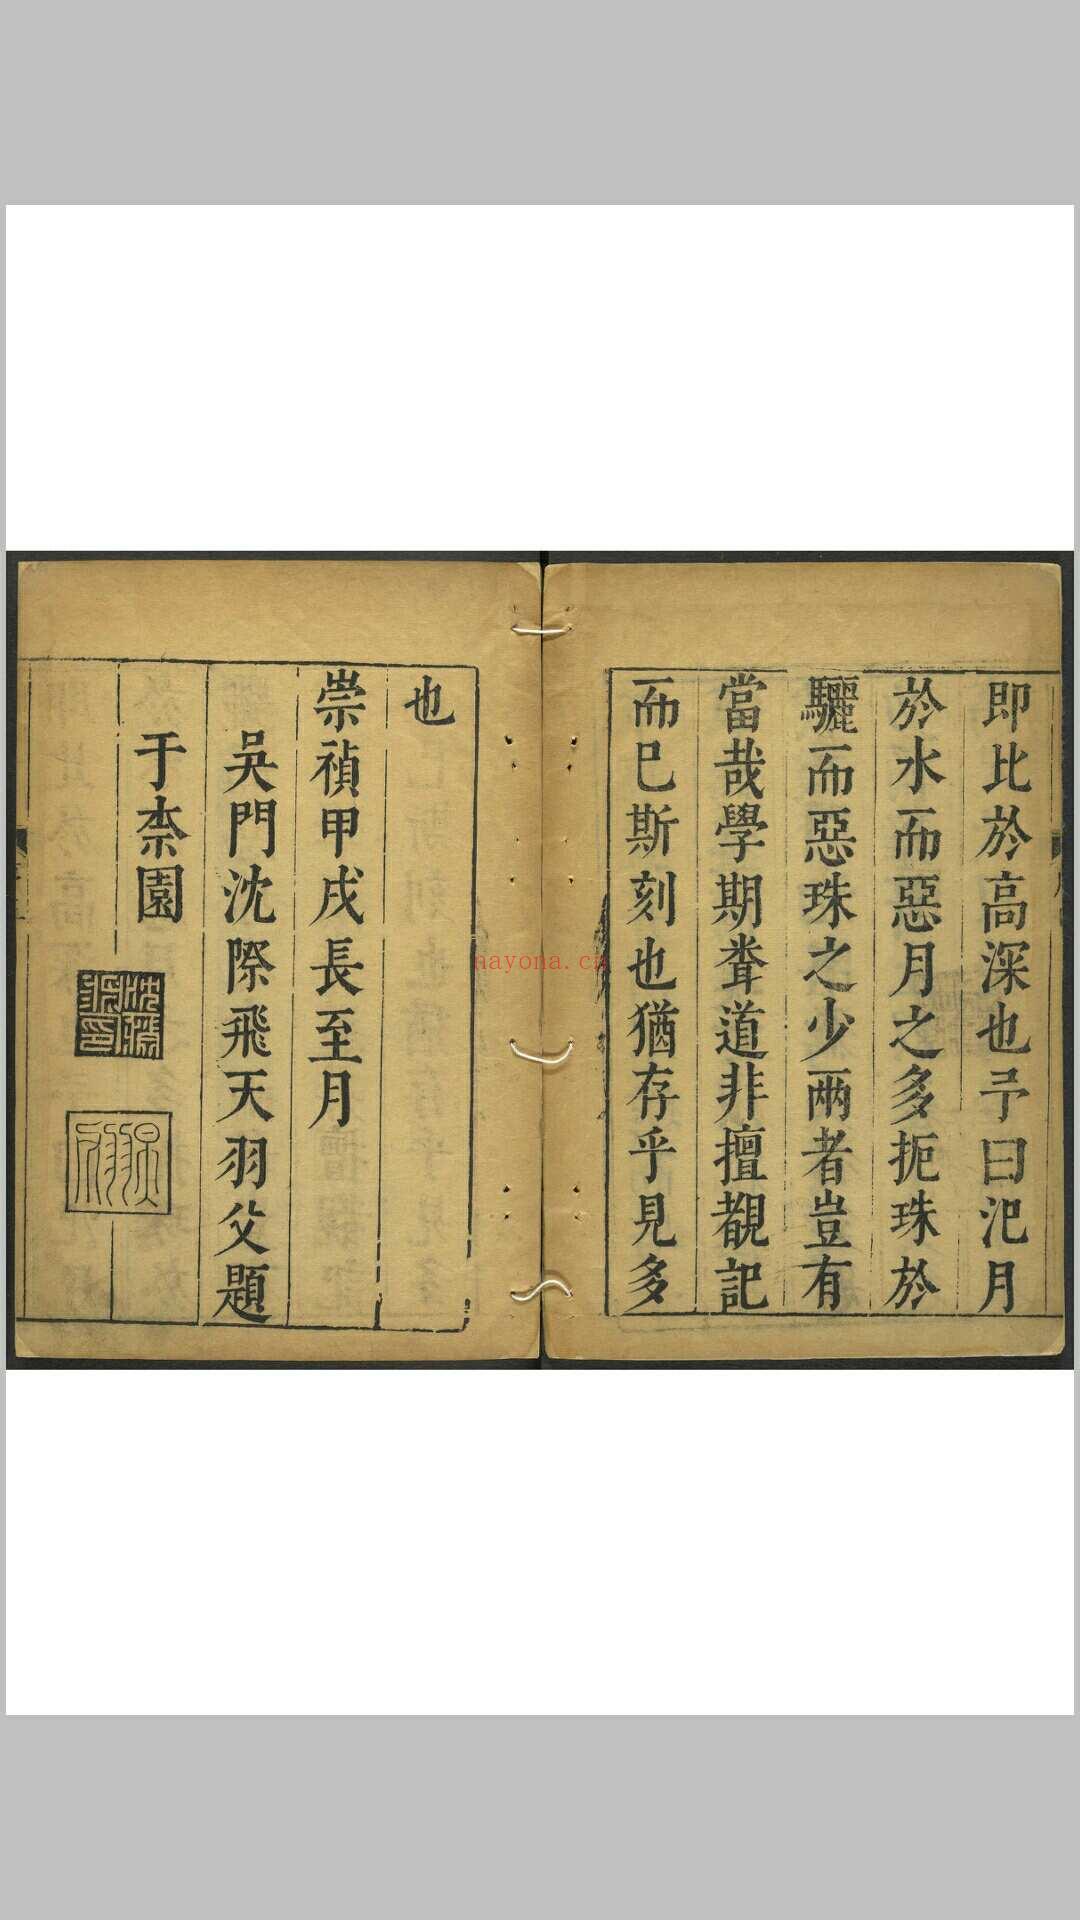 即比於高深也予曰汜月
於水而惡月之多扼珠於
驪而惡珠之少兩者豈有
當哉學期耸道非擅覩記
而巳斯刻也猶存乎見多
也
崇禎甲戌長至月
吳門沈際飛天羽父題
于柰園
沈際飛印
nayona.cn